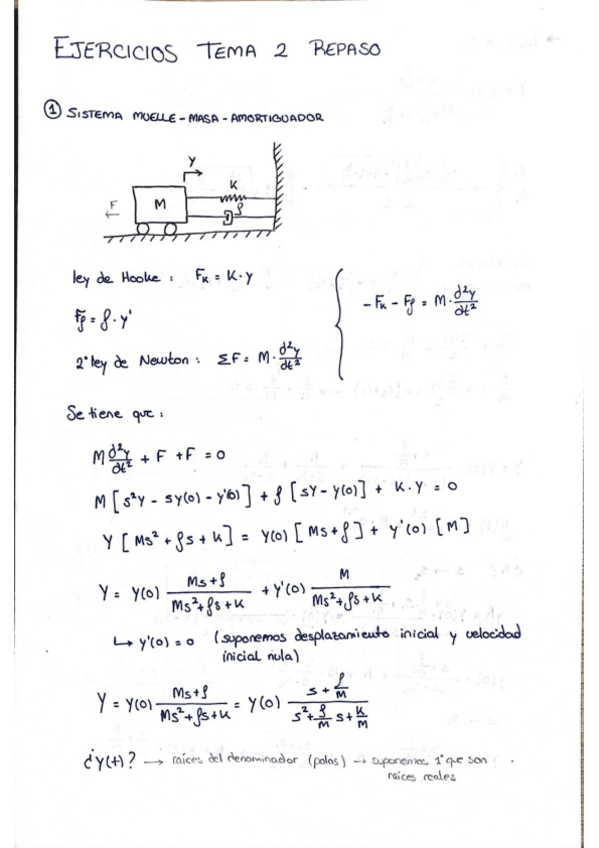 EJERCICIOS TEMA 2 REPASO
① SISTEMA MUELLE-MASA-AMORTIGUADOR
y
K
F M ρ
ley de Hooke : Fk = K·y
Fρ = ρ·y'
- Fk - Fρ = M·d²y/dt²
2ª ley de Newton : ΣF = M·d²y/dt²
Se tiene que :
M d²y/dt² + F + F = 0
M [s²Y - sy(0) - y'(0)] + ρ [sY - y(0)] + K·Y = 0
Y [Ms² + ρs + k] = y(0) [Ms + ρ] + y'(0) [M]
Y = y(0) (Ms + ρ)/(Ms² + ρs + k) + y'(0) M/(Ms² + ρs + k)
↳ y'(0) = 0 (suponemos desplazamiento inicial y velocidad
inicial nula)
Y = y(0) (Ms + ρ)/(Ms² + ρs + k) = y(0) (s + ρ/M)/(s² + ρ/M s + k/M)
¿y(t)? → raíces del denominador (polos) → suponemos 1º que son
raíces reales